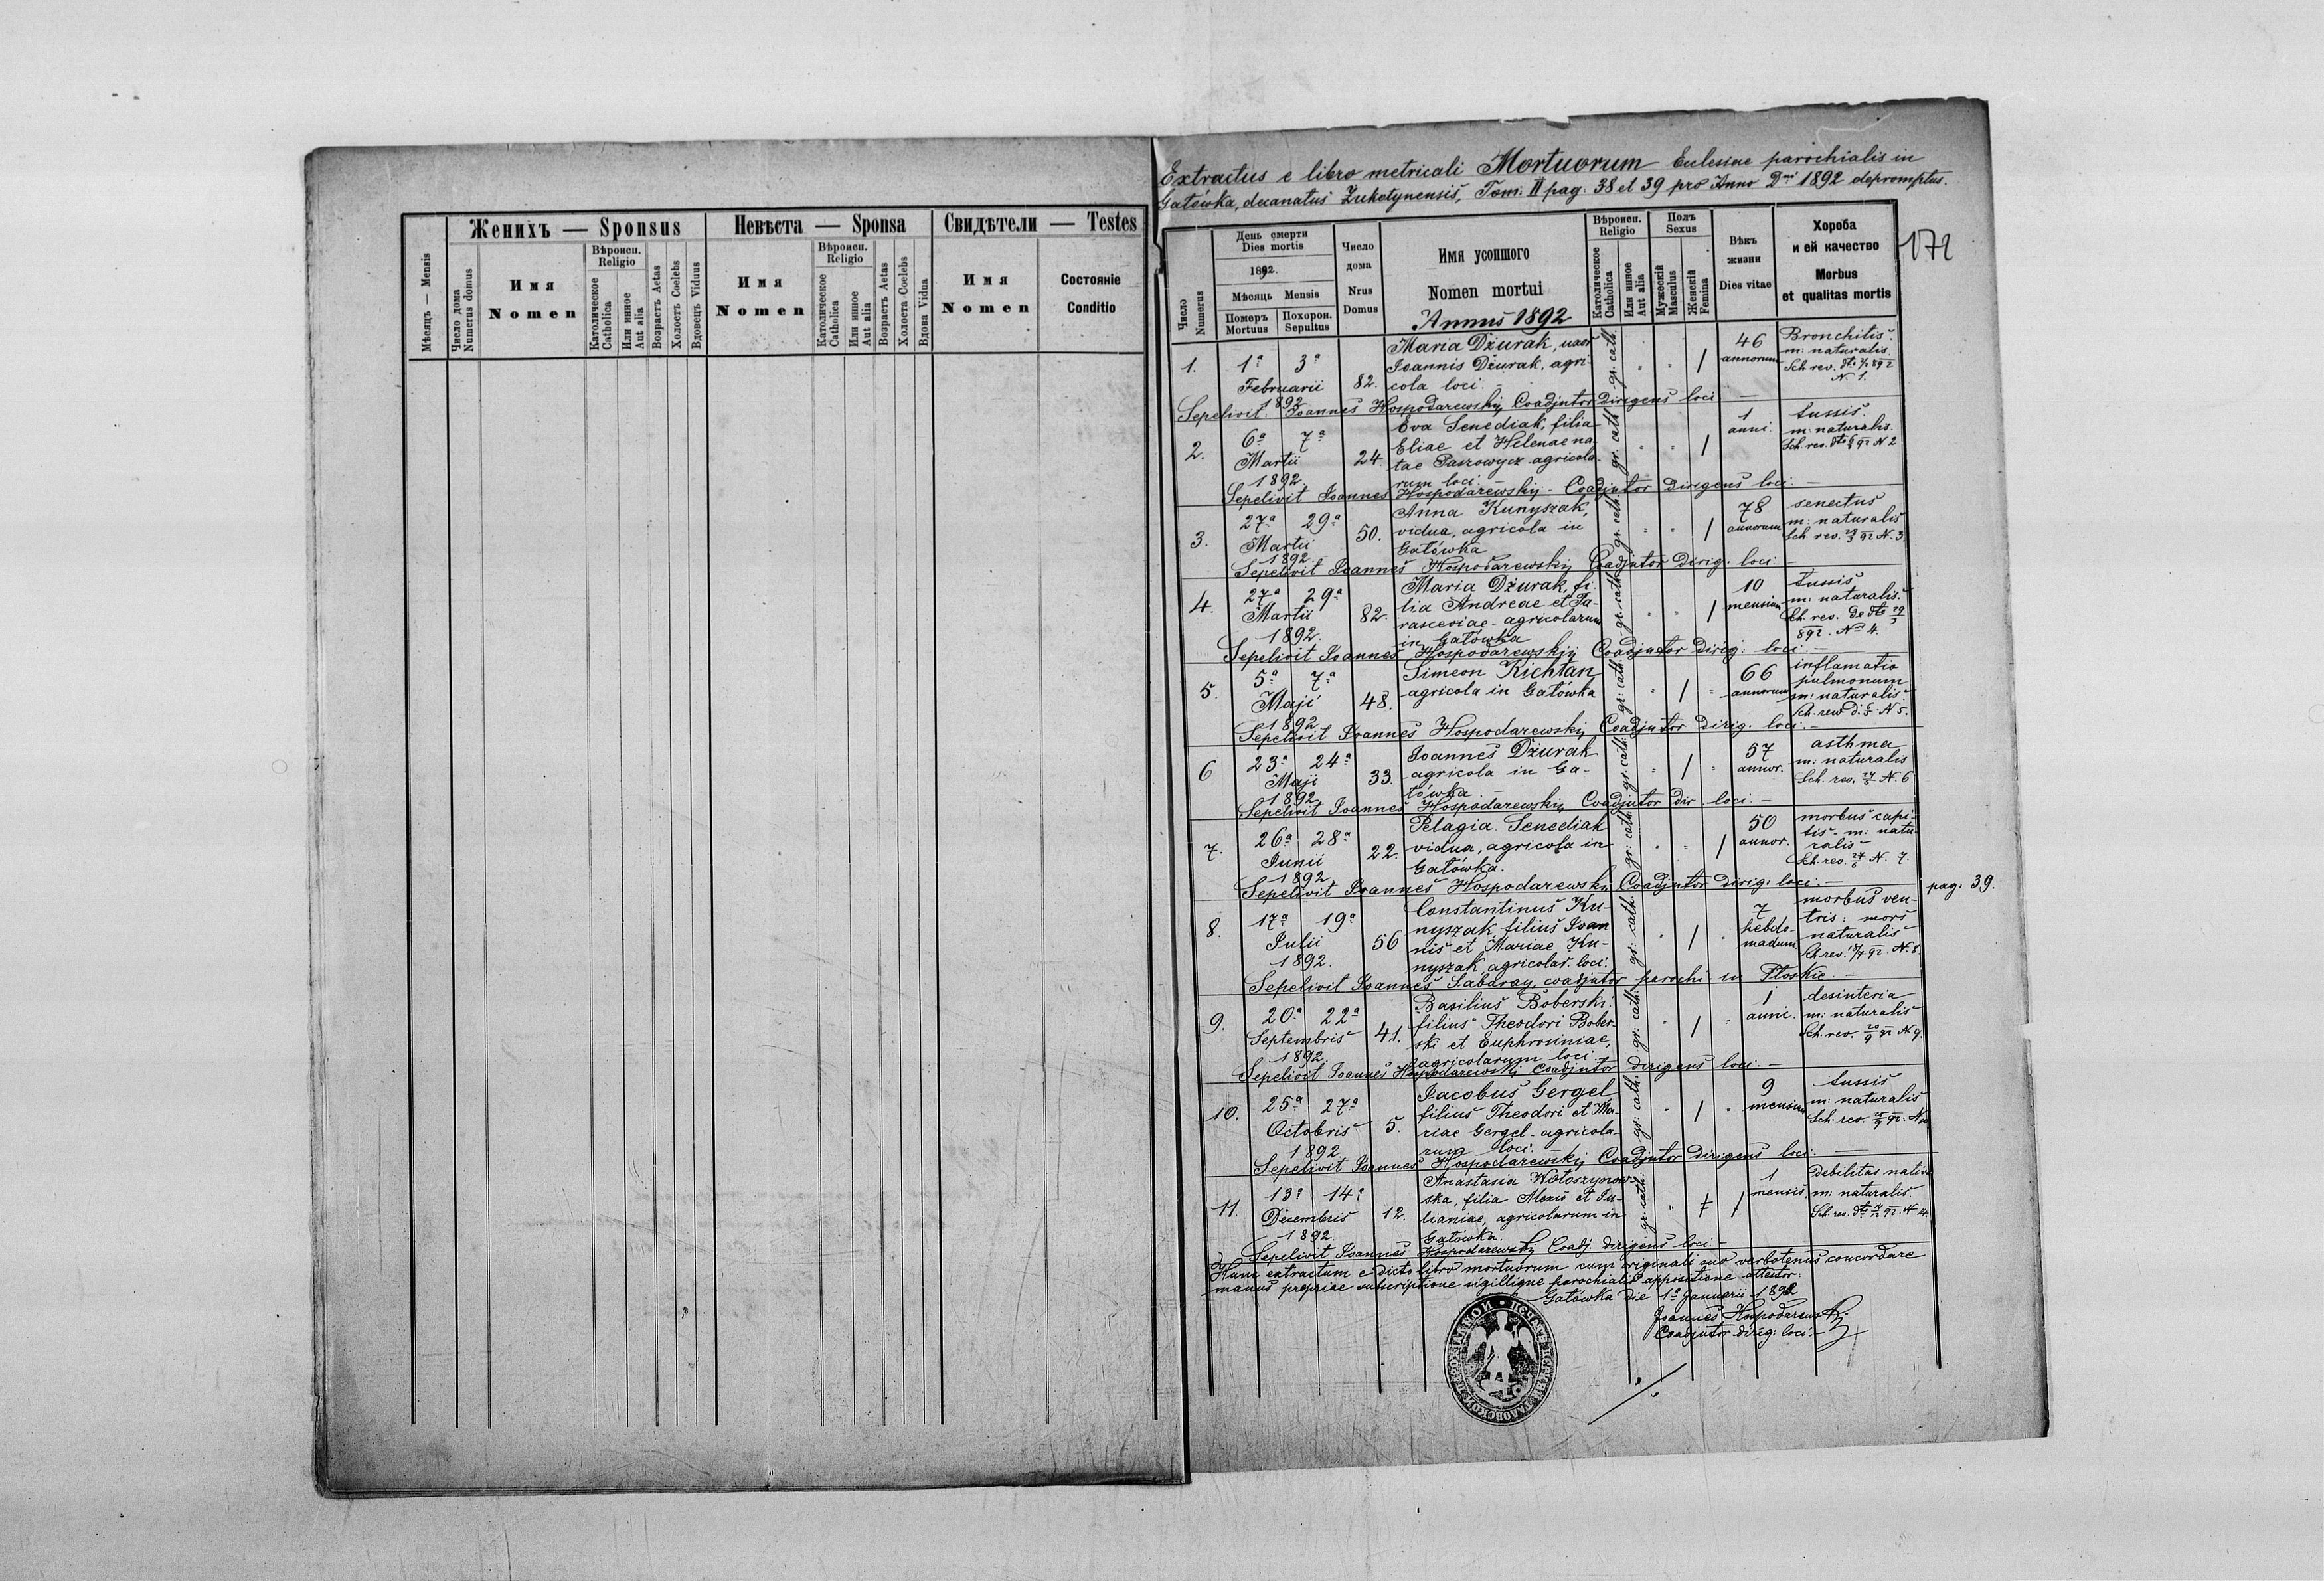 Женихъ — Sponsus
Невѣста — Sponsa
Свидѣтели — Testes
Мѣсяцъ — Mensis
Число дома
Numerus domus
Имя
Nomen
Вѣроисп.
Religio
Католическое
Catholica
Или инное
Aut alia
Возрастъ Aetas
Холостъ Coelebs
Вдовецъ Viduus
Имя
Nomen
Вѣроисп.
Religio
Католическое
Catholica
Или инное
Aut alia
Возрастъ Aetas
Холоста Coelebs
Вдова Vidua
Имя
Nomen
Состояніе
Conditio
Extractus e libro metricali Mortuorum Eclesiae parochialis in
Gatówka, decanatus Żukotynensis, Tom. II pag: 38 et 39 pro Anno Dni 1892 depromptus.
172
Число
Numerus
День смерти
Dies mortis
1892.
Мѣсяць Mensis
Померъ
Mortuus
Похорон.
Sepultus
Число
дома
Nrus
Domus
Имя усопшого
Nomen mortui
Annus 1892
Вѣроисп.
Religio
Католическое
Catholica
Или инное
Aut alia
Полъ
Sexus
Мужескій
Masculus
Женскій
Femina
Вѣкъ
жизни
Dies vitae
Хороба
и ей качество
Morbus
et qualitas mortis
1. 1a 3a Februarii 1892 82.
Maria Dżurak, uxor
Joannis Dżurak, agri-
cola loci.
gr. cath. 46 annorum
Bronchitis.
m: naturalis
Sch. rev.
N. 1.
Sepelivit Joannes Hospodarewskij Coadjutor dirigens loci —
2. 6a 7a Martii 1892. 24.
Eva Senediak, filia
Eliae et Helenae na-
tae Paszowycz agricola-
rum loci.
gr. cath. 1 anni.
tussis.
m: naturalis.
Sch. rev. N 2
Sepelivit Joannes Hospodarewskij Coadjutor dirigens loci. —
3. 27a 29a Martii 1892. 50.
Anna Kunyszak,
vidua, agricola in
Gatówka
gr. cath. 78 annorum
senectus
m: naturalis
Sch. rev. N. 3.
Sepelivit Joannes Hospodarewskij Coadjutor dirig. loci. —
4. 27a 29a Martii 1892. 82.
Maria Dżurak, fi-
lia Andreae et Pa-
rasceviae agricolarum
in Gatówka
gr. cath. 10 mensium
tussis
m: naturalis.
Sch. rev. de dto
892. No 4.
Sepelivit Joannes Hospodarewskij Coadjutor dirig: loci. —
5. 5a 7a Maji 1892 48.
Simeon Kichtan
agricola in Gatówka
gr. cath. 66 annorum
inflamatio
pulmonum
m: naturalis.
N 5.
Sepelivit Joannes Hospodarewskij Coadjutor dirig. loci. —
6 23a 24a Maji 1892 33.
Joannes Dżurak
agricola in Ga-
tówka. —
gr. cath. 57 annor.
asthma
m: naturalis
Sch. rev. N. 6.
Sepelivit Joannes Hospodarewskij Coadjutor dir. loci. —
7. 26a 28a Junii 1892 22.
Pelagia Senediak
vidua, agricola in
Gatówka.
gr. cath. 50 annor.
morbus capi-
tis. m: natu-
ralis
Sch. rev. N. 7.
Sepelivit Joannes Hospodarewskij Coadjutor dirig. loci. —
pag. 39.
8. 17a 19a Julii 1892. 56
Constantinus Ku-
nyszak filius Joan
nis et Mariae Ku-
nyszak, agricolar. loci.
gr: cath. 7 hebdo-
madum
morbus ven-
tris: mors
naturalis
Sch. rev. N. 8.
Sepelivit Joannes coadjutor parochi in Płoskie. —
9. 20a 22a Septembris 1892. 41.
Basilius Boberski.
filius Theodori Bober-
ski et Euphrosiniae,
agricolarum loci. —
gr: cath. 1 anni.
desinteria
m: naturalis
Sch. rev. N 9.
Sepelivit Joannes Hospodarewskij Coadjutor dirigens loci. —
10. 25a 27a Octobris 1892 5.
Jacobus Gergel
filius Theodori et Ma-
riae Gergel agricola-
rum loci.
gr: cath. 9 mensium
tussis
m: naturalis
Sch. rev.
Sepelivit Joannes Hospodarewskij Coadjutor dirigens loci. —
11. 13a 14a Decembris 1892. 12.
Anastasia Wołoszynow-
ska, filia Alexii et Ju-
lianiae, agricolarum in
Gatówka.
gr: cath. 1 mensis.
Debilitas nativa
m: naturalis.
Sch. rev.
Sepelivit Joannes Hospodarewskij Coadj. dirigens loci. —
Hunc extractum e dicto libro mortuorum cum originali suo verbotenus concordare
manus propriae subscriptione sigillique parochialis appositione attestor.
Gatówka die 1a Januarii 1892
Joannes Hospodarewskij
Coadjutor dirig: loci. —